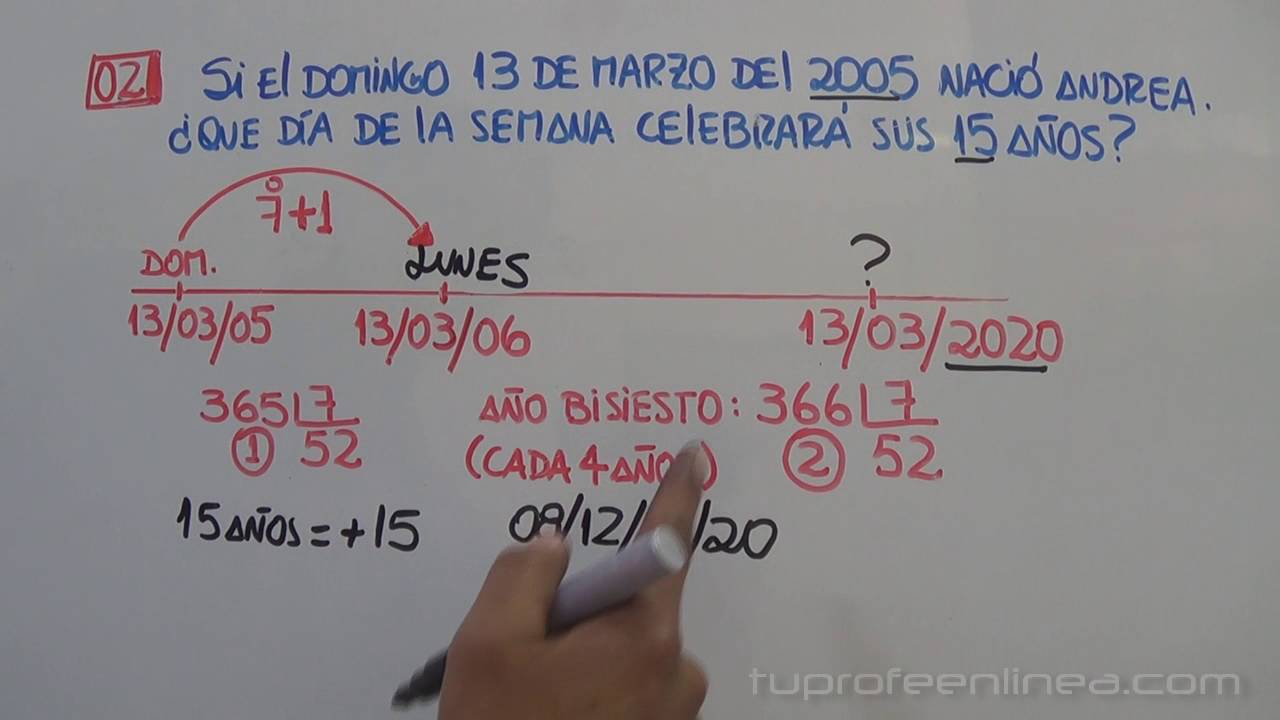 02 Si El DOMINGO 13 DE MARZO DEl 2005 NACIÓ ANDREA.
¿QUE DÍA DE lA SEMANA CElEBRARÁ SUS 15 AÑOS?
7̊+1
DOM. LUNES ?
13/03/05 13/03/06 13/03/2020
365 7 AÑO BISIESTO: 366 7
1 52 (CADA 4 AÑOS) 2 52
15 AÑOS = +15 08/12/ /20
tuprofeenlinea.com